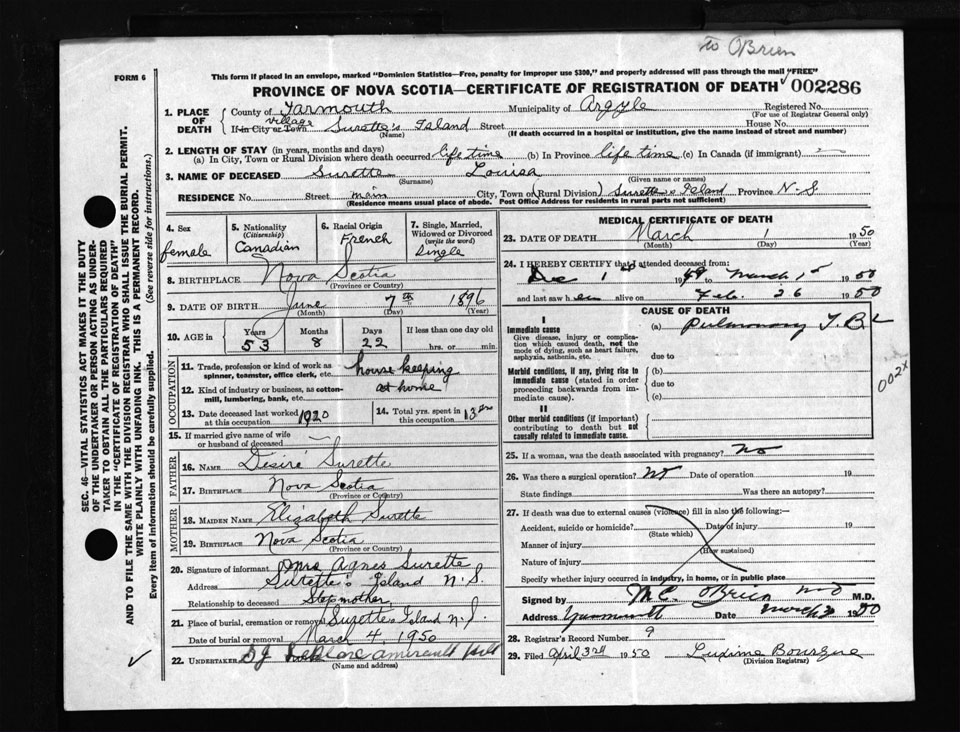 to OBrien
FORM 6
This form if placed in an envelope, marked "Dominion Statistics—Free, penalty for improper use $300," and properly addressed will pass through the mail "FREE"
PROVINCE OF NOVA SCOTIA—CERTIFICATE OF REGISTRATION OF DEATH 002286
1. PLACE OF DEATH
County of Yarmouth Municipality of Argyle Registered No.
(For use of Registrar General only)
village
If in City or Town Surette's Island Street House No.
(Name) (If death occurred in a hospital or institution, give the name instead of street and number)
2. LENGTH OF STAY (in years, months and days)
(a) In City, Town or Rural Division where death occurred life time (b) In Province life time (c) In Canada (if immigrant)
3. NAME OF DECEASED Surette Louisa
(Surname) (Given name or names)
RESIDENCE No. Street main City, Town or (Rural Division) Surette's Island Province N.S.
(Residence means usual place of abode. Post Office Address for residents in rural parts not sufficient)
4. Sex female
5. Nationality (Citizenship) Canadian
6. Racial Origin French
7. Single, Married, Widowed or Divorced (write the word) Single
8. BIRTHPLACE Nova Scotia
(Province or Country)
9. DATE OF BIRTH June 7th 1896
(Month) (Day) (Year)
10. AGE in Years Months Days If less than one day old
53 8 22 hrs. or min.
OCCUPATION
11. Trade, profession or kind of work as spinner, teamster, office clerk, etc. house keeping
12. Kind of industry or business, as cotton-mill, lumbering, bank, etc. at home
13. Date deceased last worked at this occupation 1920
14. Total yrs. spent in this occupation 13 yrs
15. If married give name of wife or husband of deceased
FATHER
16. NAME Desiré Surette
17. BIRTHPLACE Nova Scotia
(Province or Country)
MOTHER
18. MAIDEN NAME Elizabeth Surette
19. BIRTHPLACE Nova Scotia
(Province or Country)
20. Signature of informant Mrs Agnes Surette
Address Surette's Island N.S.
Relationship to deceased Stepmother
21. Place of burial, cremation or removal Surette's Island N.S.
Date of burial or removal March 4, 1950
22. UNDERTAKER
(Name and address)
MEDICAL CERTIFICATE OF DEATH
23. DATE OF DEATH March 1 1950
(Month) (Day) (Year)
24. I HEREBY CERTIFY that I attended deceased from:
Dec 1st 1949 to March 1st 1950
and last saw her alive on Feb. 26 1950
CAUSE OF DEATH
I
Immediate cause (a) Pulmonary T.B.
Give disease, injury or complication which caused death, not the mode of dying, such as heart failure, asphyxia, asthenia, etc.
due to
Morbid conditions, if any, giving rise to immediate cause (stated in order proceeding backwards from immediate cause).
(b)
due to
(c)
002x
II
Other morbid conditions (if important) contributing to death but not causally related to immediate cause.
25. If a woman, was the death associated with pregnancy? No
26. Was there a surgical operation? No Date of operation 19
State findings Was there an autopsy?
27. If death was due to external causes (violence) fill in also the following:—
Accident, suicide or homicide? Date of injury 19
(State which)
Manner of injury
(How sustained)
Nature of injury
Specify whether injury occurred in industry, in home, or in public place
Signed by M C OBrien MD M.D.
Address Yarmouth Date March 1950
28. Registrar's Record Number 9
29. Filed April 3rd 1950 Luxime Bourque
(Division Registrar)
SEC. 46—VITAL STATISTICS ACT MAKES IT THE DUTY
OF THE UNDERTAKER OR PERSON ACTING AS UNDER-
TAKER TO OBTAIN ALL THE PARTICULARS REQUIRED
IN THE "CERTIFICATE OF REGISTRATION OF DEATH"
AND TO FILE THE SAME WITH THE DIVISION REGISTRAR WHO SHALL ISSUE THE BURIAL PERMIT.
WRITE PLAINLY WITH UNFADING INK. THIS IS A PERMANENT RECORD.
Every item of information should be carefully supplied. (See reverse side for instructions.)